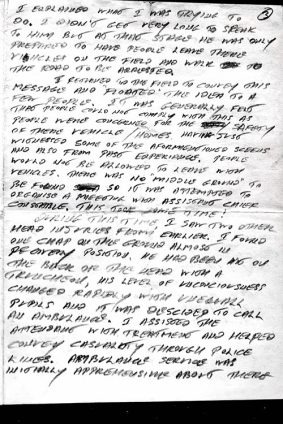 2
I EXPLAINED WHAT I WAS TRYING TO
DO. I DIDN'T GET VERY LONG TO SPEAK
TO HIM BUT AT THAT STAGE HE WAS ONLY
PREPARED TO HAVE PEOPLE LEAVE THEIR
VEHICLES ON THE FIELD AND WALK TO
THE ROAD TO BE ARRESTED.
I RETURNED TO THE FIELD TO CONVEY THIS
MESSAGE AND FLOATED THE IDEA TO A
FEW PEOPLE. IT WAS GENERALLY FELT
THAT PEOPLE COULD NOT COMPLY WITH THIS AS
PEOPLE WERE CONCERNED FOR THE SAFETY
OF THEIR VEHICLE / HOMES HAVING JUST
WITNESSED SOME OF THE AFORMENTIONED SCENES
AND ALSO FROM PAST EXPERIENCE. PEOPLE
WOULD NOT BE ALLOWED TO LEAVE WITH
VEHICLES. THERE WAS NO MIDDLE GROUND TO
BE FOUND SO IT WAS ATTEMPTED TO
ORGANISE A MEETING WITH ASSISTANT CHIEF
CONSTABLE, THIS TOOK SOME TIME!
DURING THIS TIME I SAW TWO OTHER
HEAD INJURIES FROM EARLIER. I FOUND
ONE CHAP ON THE GROUND ALMOST IN
RECOVERY POSITION. HE HAD BEEN HIT ON
THE BACK OF THE HEAD WITH A
TRUNCHEON, HIS LEVEL OF UNCONCIOUSNESS
CHANGED RAPIDLY WITH UNEQUALL
PUPILS AND IT WAS DESCIDED TO CALL
AN AMBULANCE. I ASSISTED THE
ATTENDANT WITH TREATMENT AND HELPED
CONVEY CASUALTY THROUGH POLICE
LINES. AMBULANCE SERVICE WAS
INITIALLY APPREHENSIVE ABOUT THERE